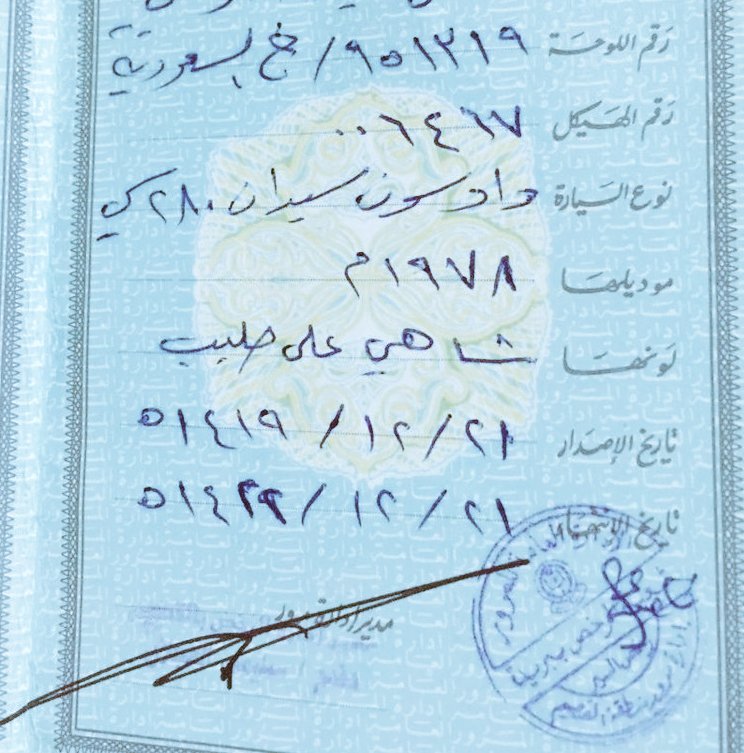 رقم اللوحة ٩٥١٣١٩ / خ السعودية
رقم الهيكل ٠٠٦٤٦٧
نوع السيارة داتسون سيدان ٢٨٠ سي
موديلها ١٩٧٨م
لونها شاهي على حليب
تاريخ الإصدار ٢١ / ١٢ / ١٤١٩ه
تاريخ الانتهاء ٢١ / ١٢ / ١٤٢٩ه
مدير إدارة مرور